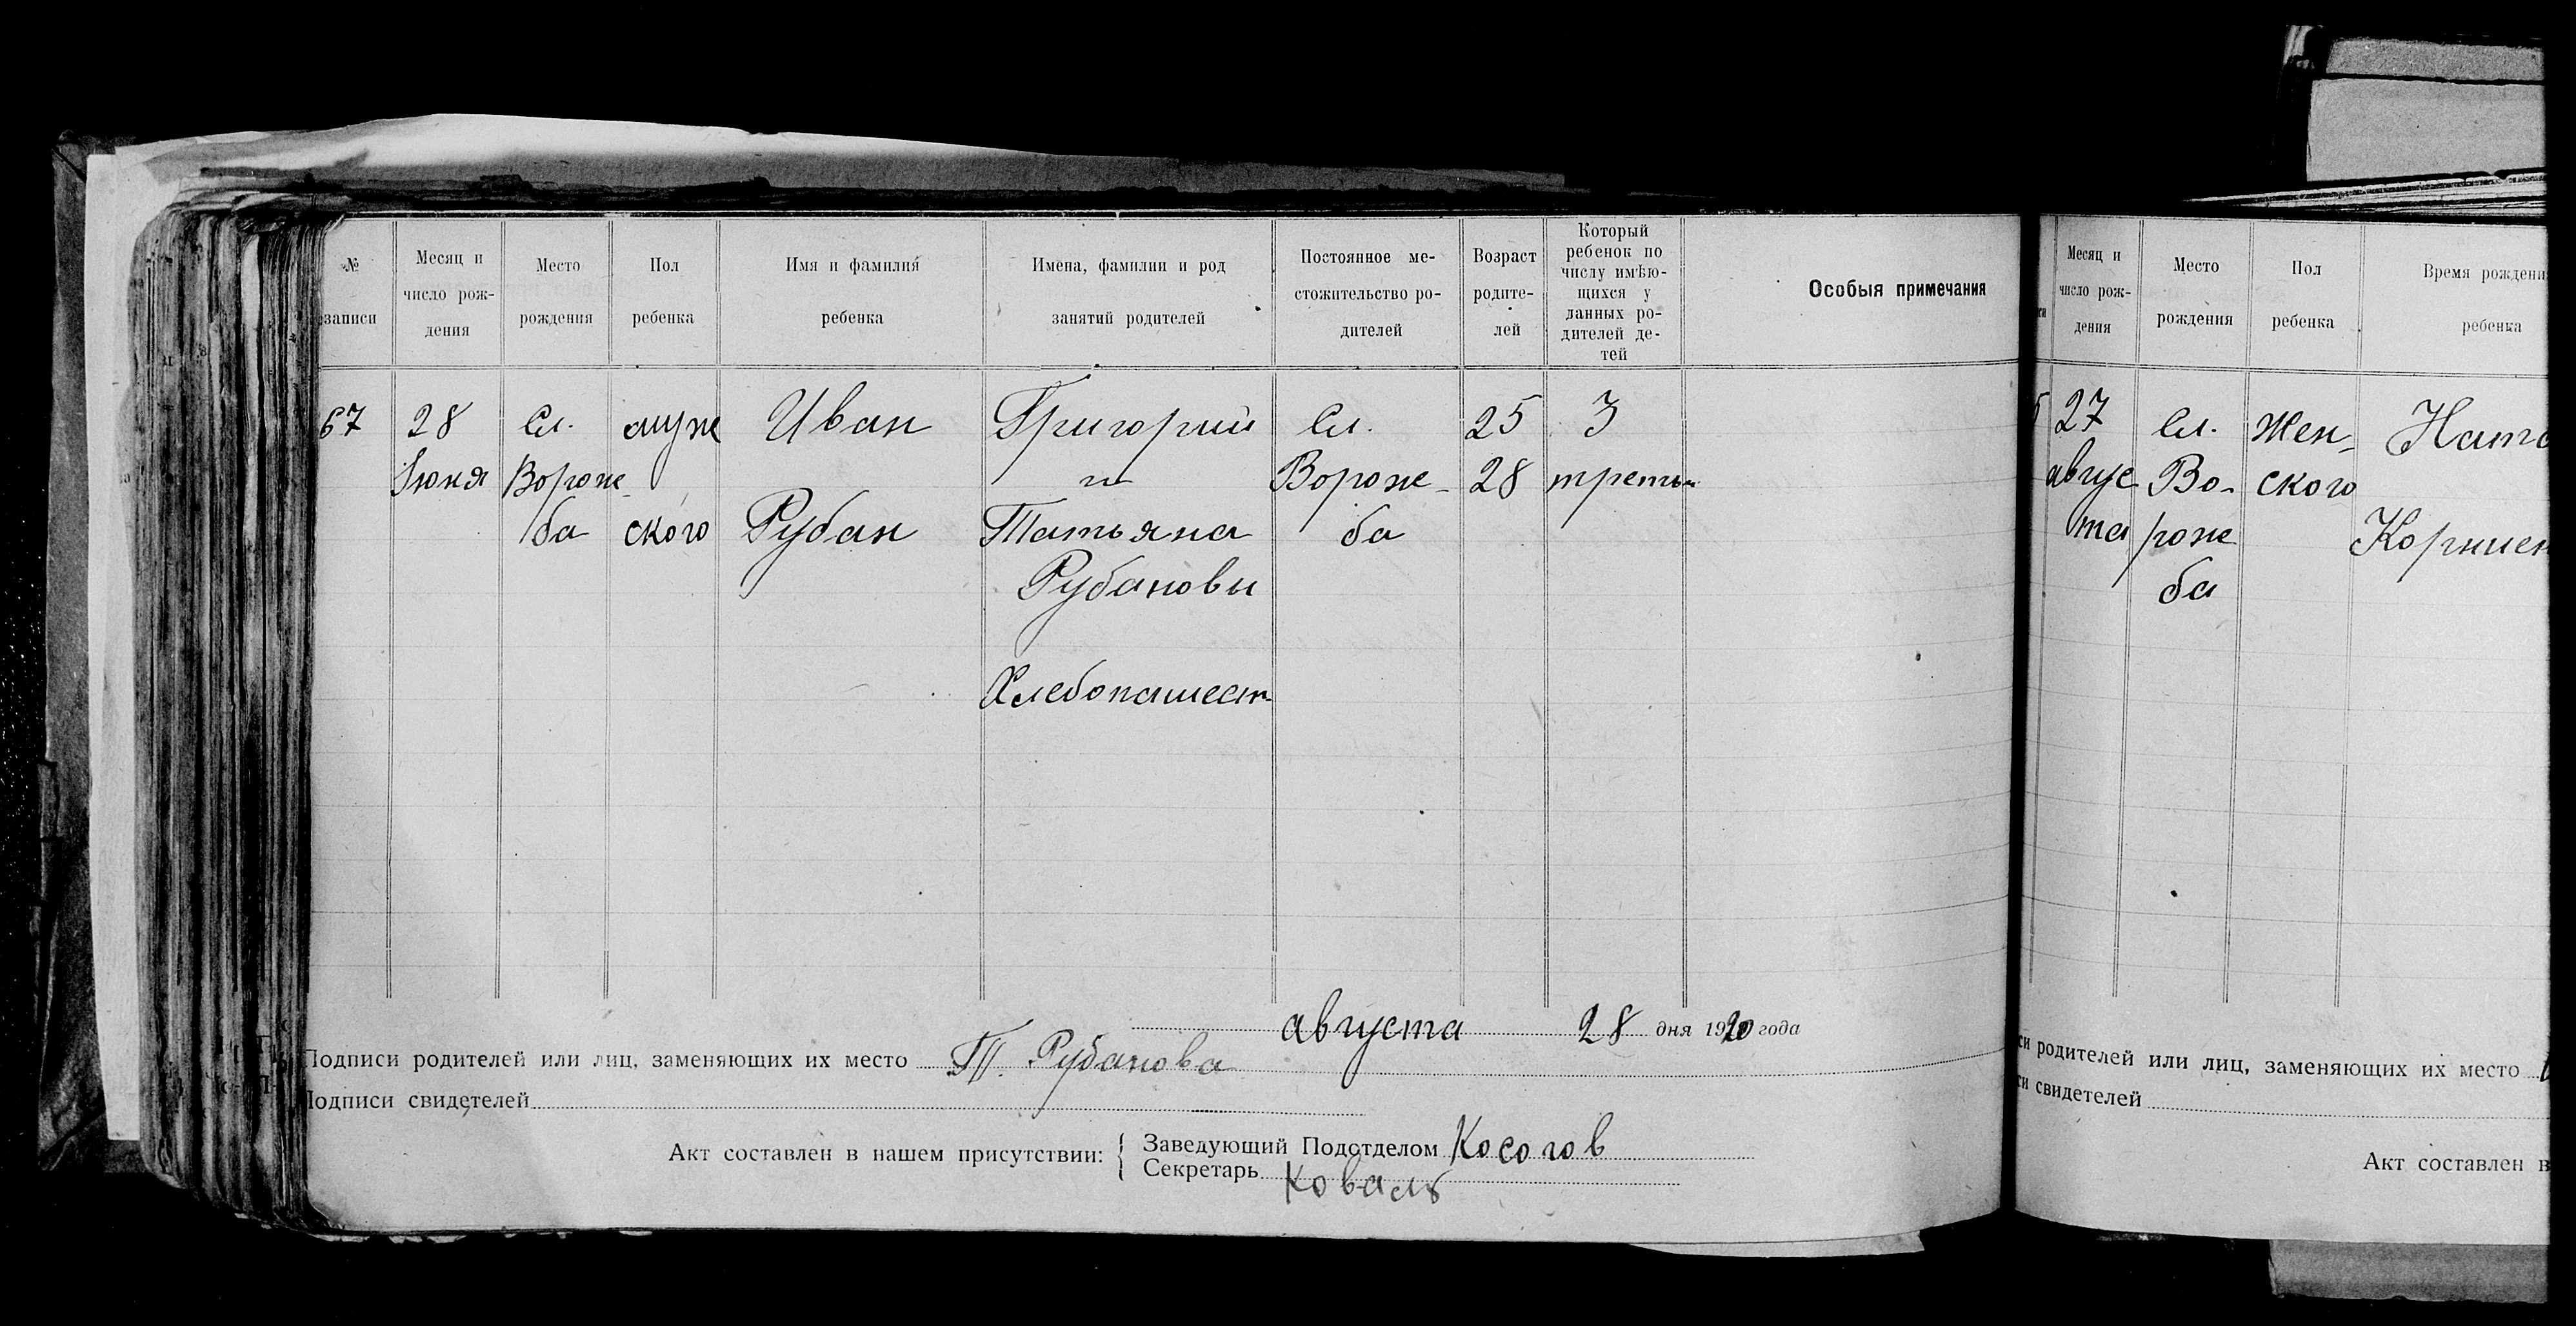 № записи
Месяц и число рождения
Место рождения
Пол ребенка
Имя и фамилия ребенка
Имена, фамилии и род занятий родителей
Постоянное местожительство родителей
Возраст родителей
Который ребенок по числу имѣющихся у данных родителей детей
Особыя примечания
67
28
Июня
Сл.
Вороже-
ба
муж
ского
Иван
Рубан
Григорий
и
Татьяна
Рубановы
Хлебопашест
Сл.
Вороже-
ба
25
28
3
третьи
августа 28 дня 1920 года
Подписи родителей или лиц, заменяющих их место Т. Рубанова
Подписи свидетелей
Акт составлен в нашем присутствии:
Заведующий Подотделом Косогов
Секретарь Коваль
Месяц и число рождения
Место рождения
Пол ребенка
Время рождени
ребенка
27
авгус
та
Сл.
Во-
роже
ба
Жен-
ского
Ната
Корниен
си родителей или лиц, заменяющих их место
си свидетелей
Акт составлен в